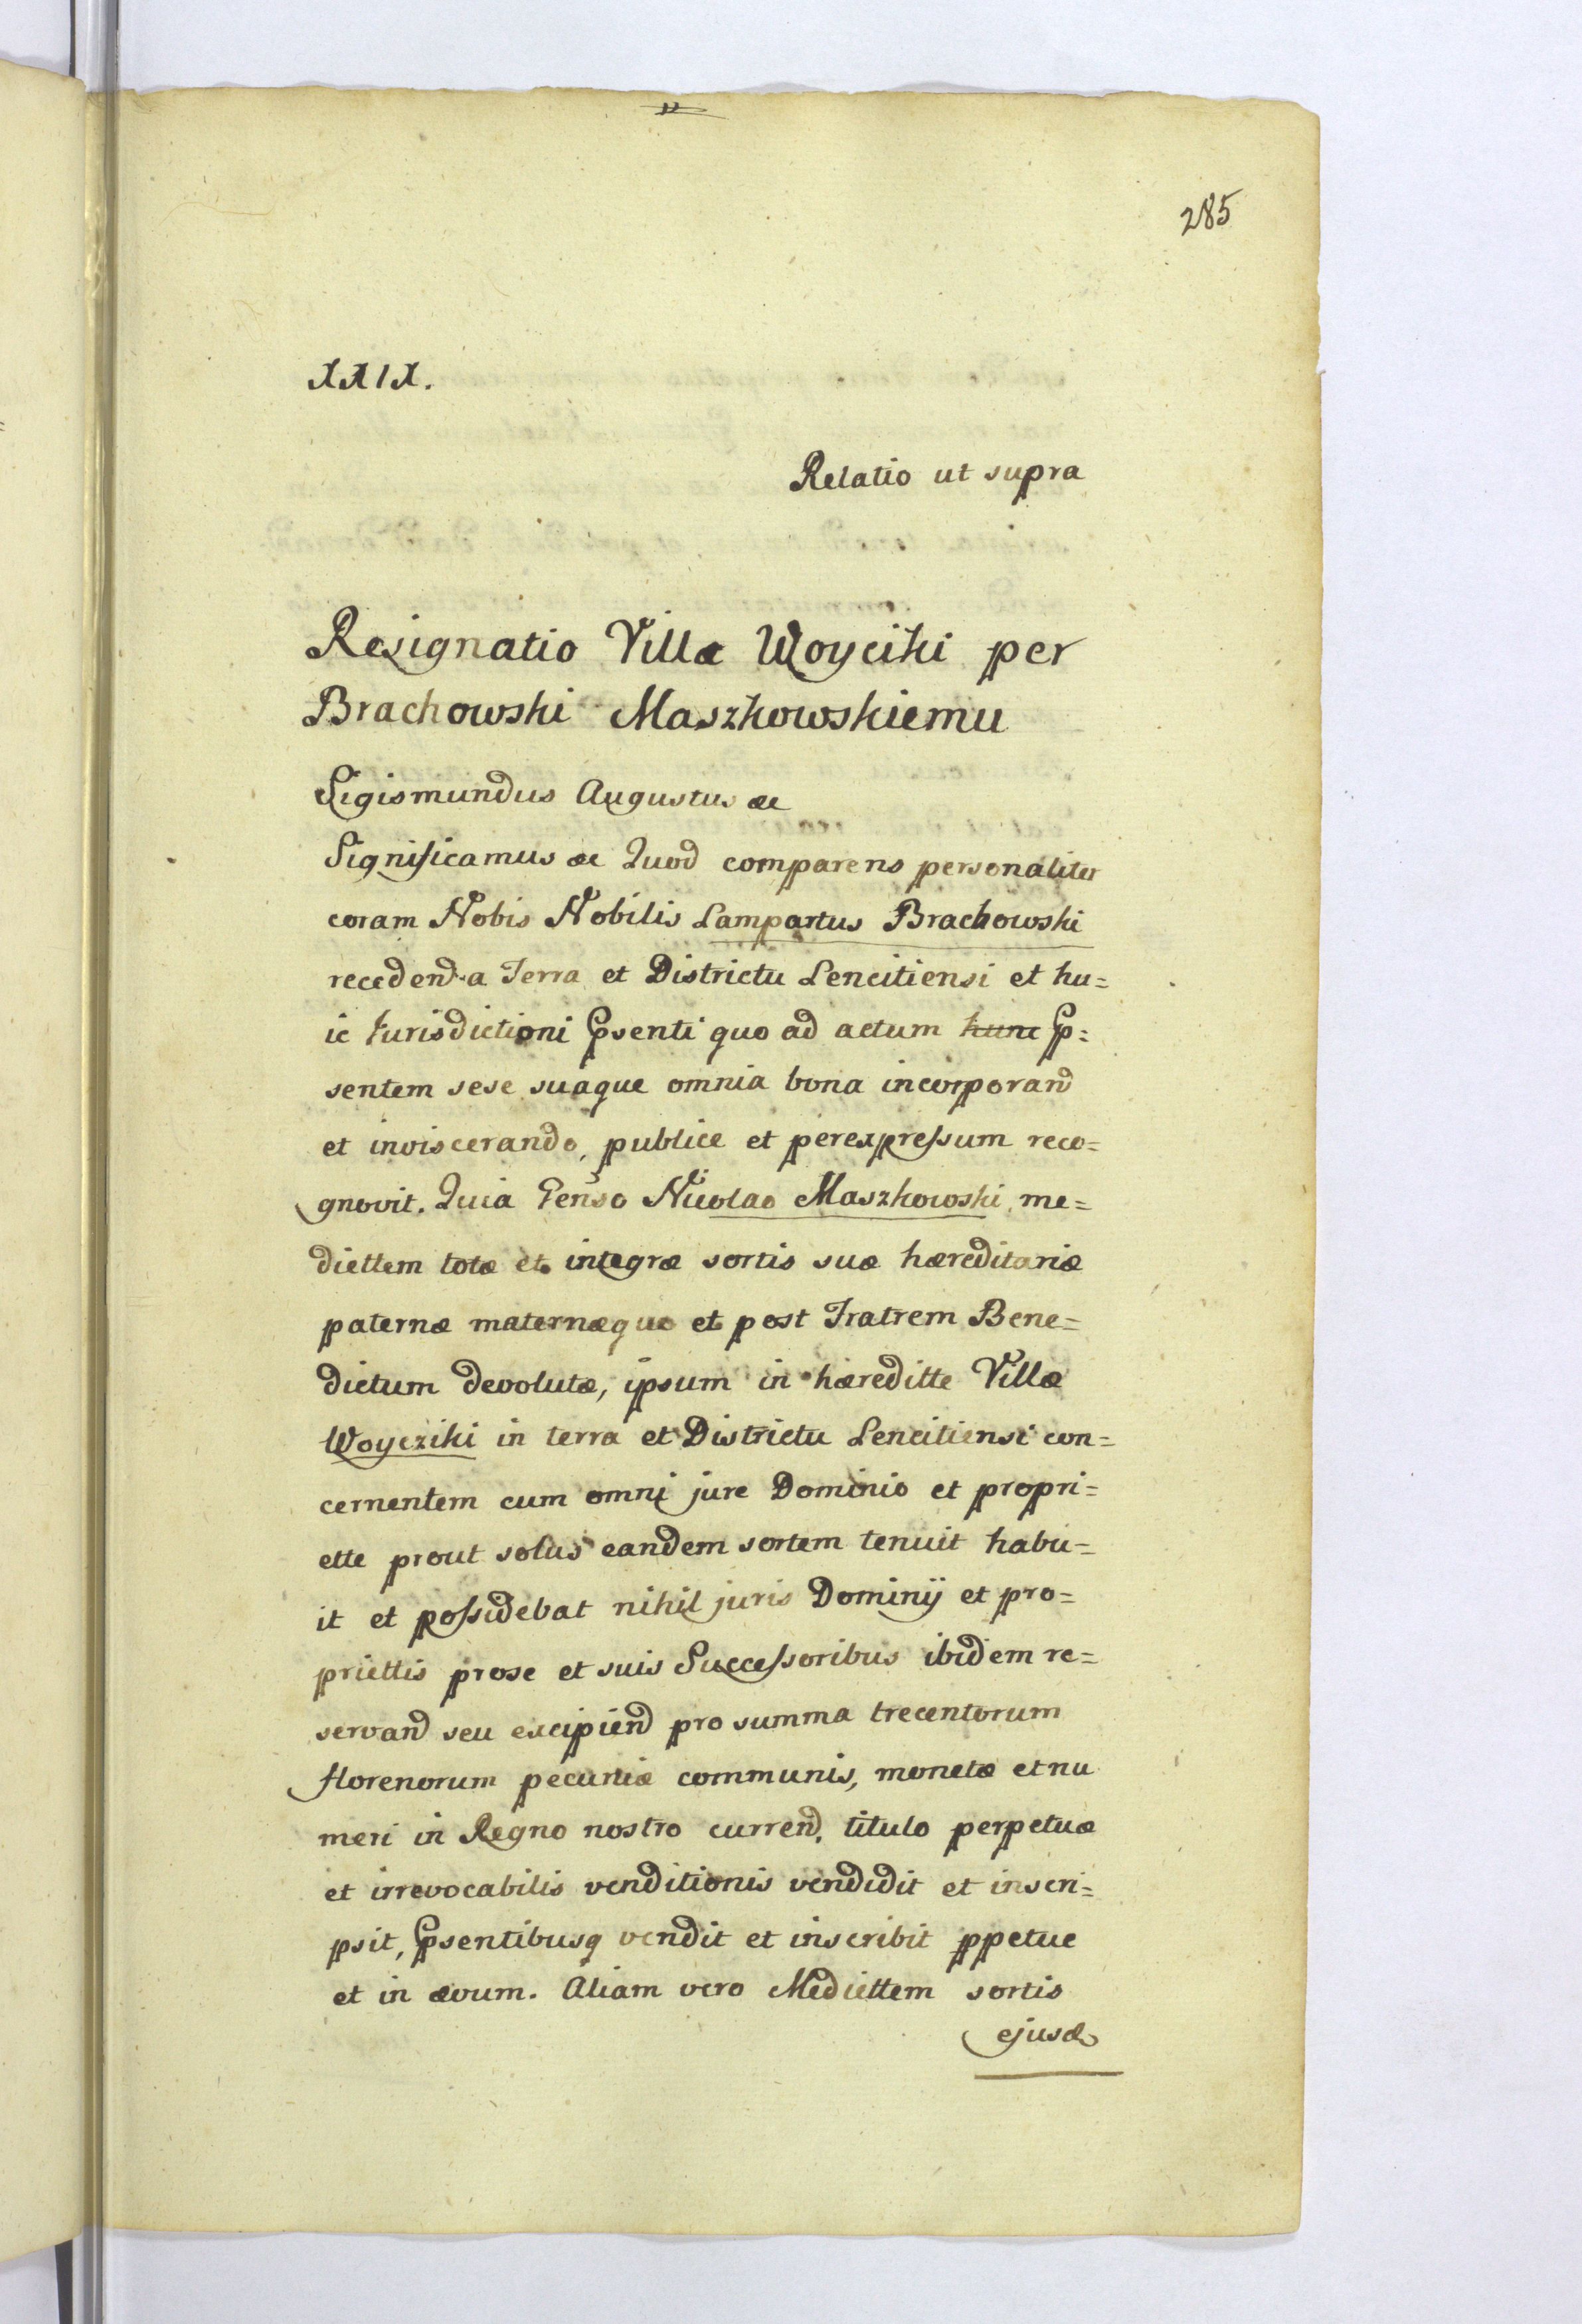 285
XXIX.
Relatio ut supra
Resignatio Villæ Woyciki per
Brachowski Maszkowskiemu
Sigismundus Augustus &c
Significamus &c Quod comparens personaliter
coram Nobis Nobilis Lampartus Brachowski
recedend a Terra et Districtu Lencitiensi et hu=
ic Jurisdictioni Psenti quo ad actum hunc P=
sentem sese suaque omnia bona incorporand
et inviscerando, publice et perexpressum reco=
gnovit. Quia Genso Nicolao Maszkowski me=
diettem totæ et integræ sortis suæ hæreditariæ
paternæ maternæque et post Fratrem Bene=
dictum devolutæ, ipsum in hæreditte Villæ
Woycziki in terra et Districtu Lencitiensi con=
cernentem cum omni jure Dominio et propri=
ette prout solus eandem sortem tenuit habu=
it et possidebat nihil juris Dominij et pro=
priettis prose et suis Successoribus ibidem re=
servand seu excipiend pro summa trecentorum
florenorum pecuniæ communis, monetæ et nu
meri in Regno nostro currend, titulo perpetuæ
et irrevocabilis venditionis vendidit et inscri=
psit, Psentibusq vendit et inscribit ppetue
et in ævum. Aliam vero Mediettem sortis
ejusd